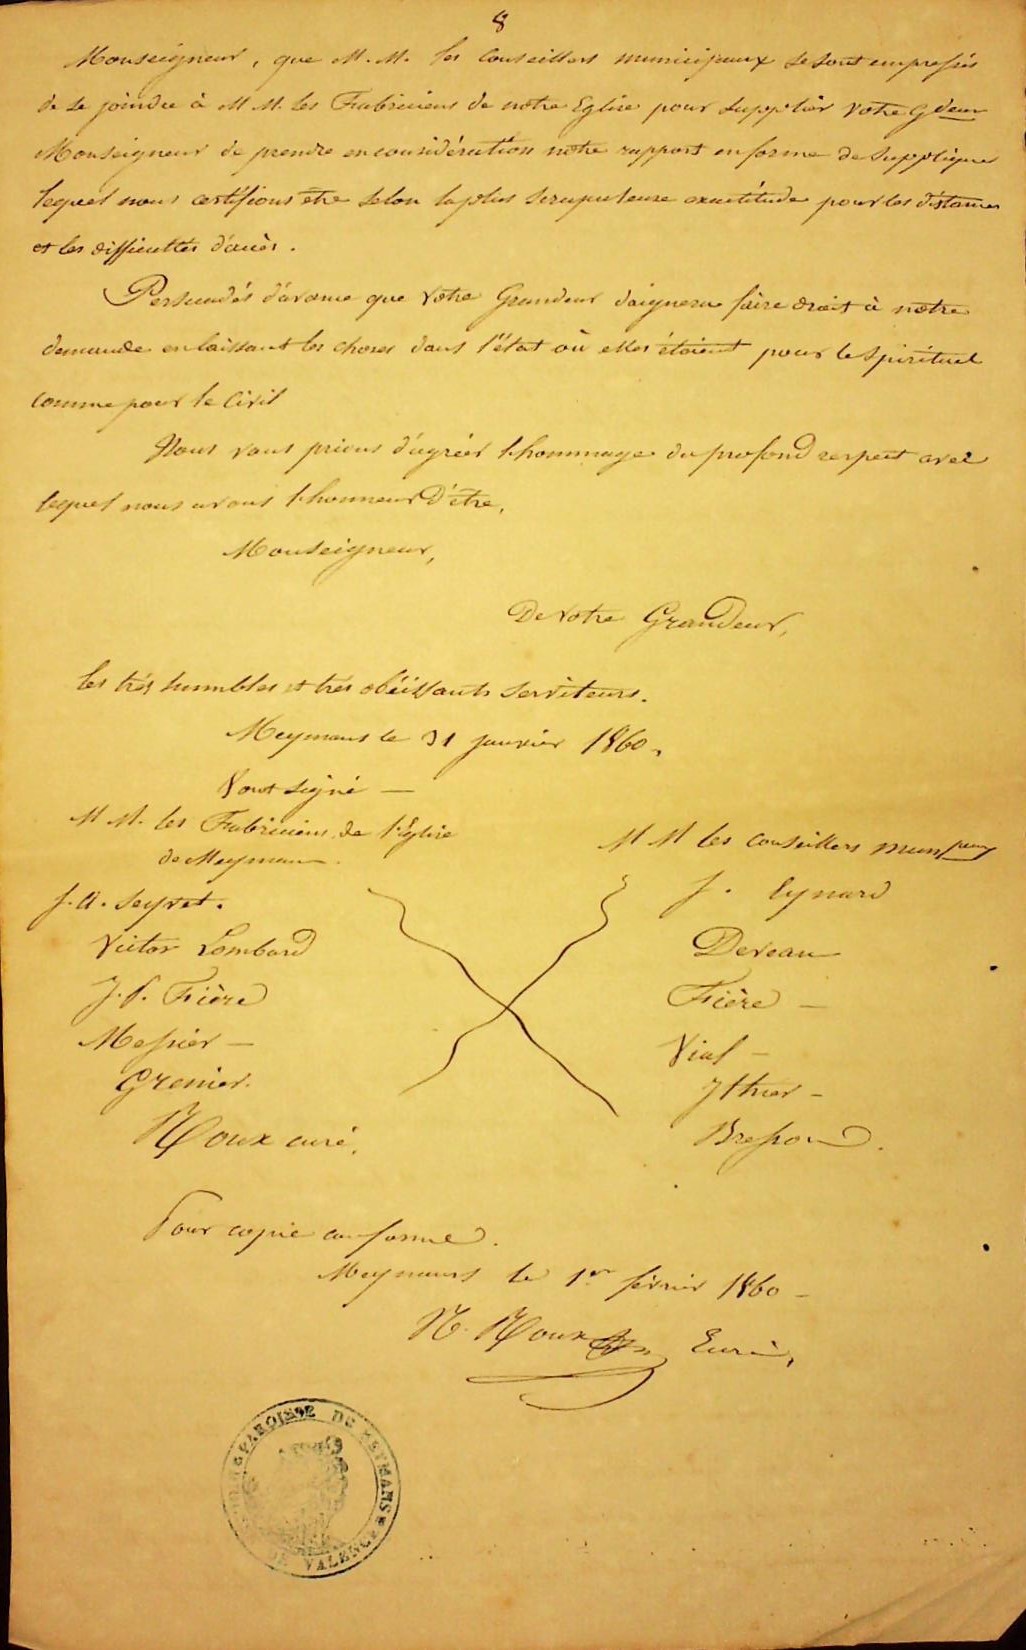 8
Monseigneur, que M.M. les Conseillers municipaux se sont empressés
de se joindre à M M. les Fabriciens de notre Eglise pour supplier Votre Gdeur
Monseigneur de prendre en considération notre rapport en forme de supplique
lequel nous certifions être selon la plus scrupuleuse exactitude pour les distances
et les difficultés d'accès.
Persuadés d'avance que Votre Grandeur daignera faire droit à notre
demande en laissant les choses dans l'état où elles étaient pour le spirituel
comme pour le Civil
Nous vous prions d'agréer l'hommage du profond respect avec
lequel nous avons l'honneur D'être,
Monseigneur,
De Votre Grandeur,
les très humbles et très obéissants serviteurs.
Meymans le 31 janvier 1860.
Sont signé —
M M. les Fabriciens de l'Église
de Meymans.
M M les conseillers munpaux
J. A. Seyvet.
J. Eynard
Victor Lombard
Deveau
J. P. Fière
Fière —
Messier —
Vial —
Grenier.
Ithier —
Roux curé.
Bresson.
Pour copie conforme.
Meymans le 1er février 1860 —
N. Roux Curé,
PAROISSE DE MEYMANS
DE VALENCE